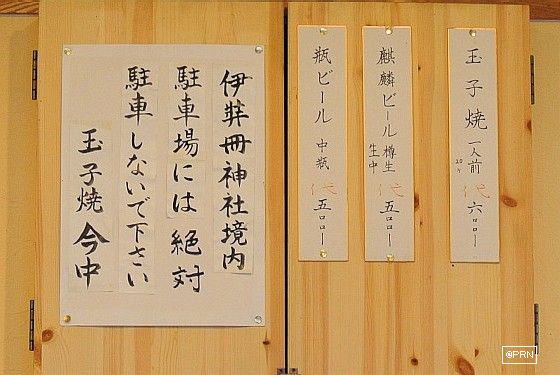 玉子焼 一人前 20ヶ 代 六〇〇ー
麒麟ビール 樽生 生中 代 五〇〇ー
瓶ビール 中瓶 代 五〇〇ー
伊弉冊神社境内
駐車場には絶対
駐車しないで下さい
玉子焼 今中
©PRN